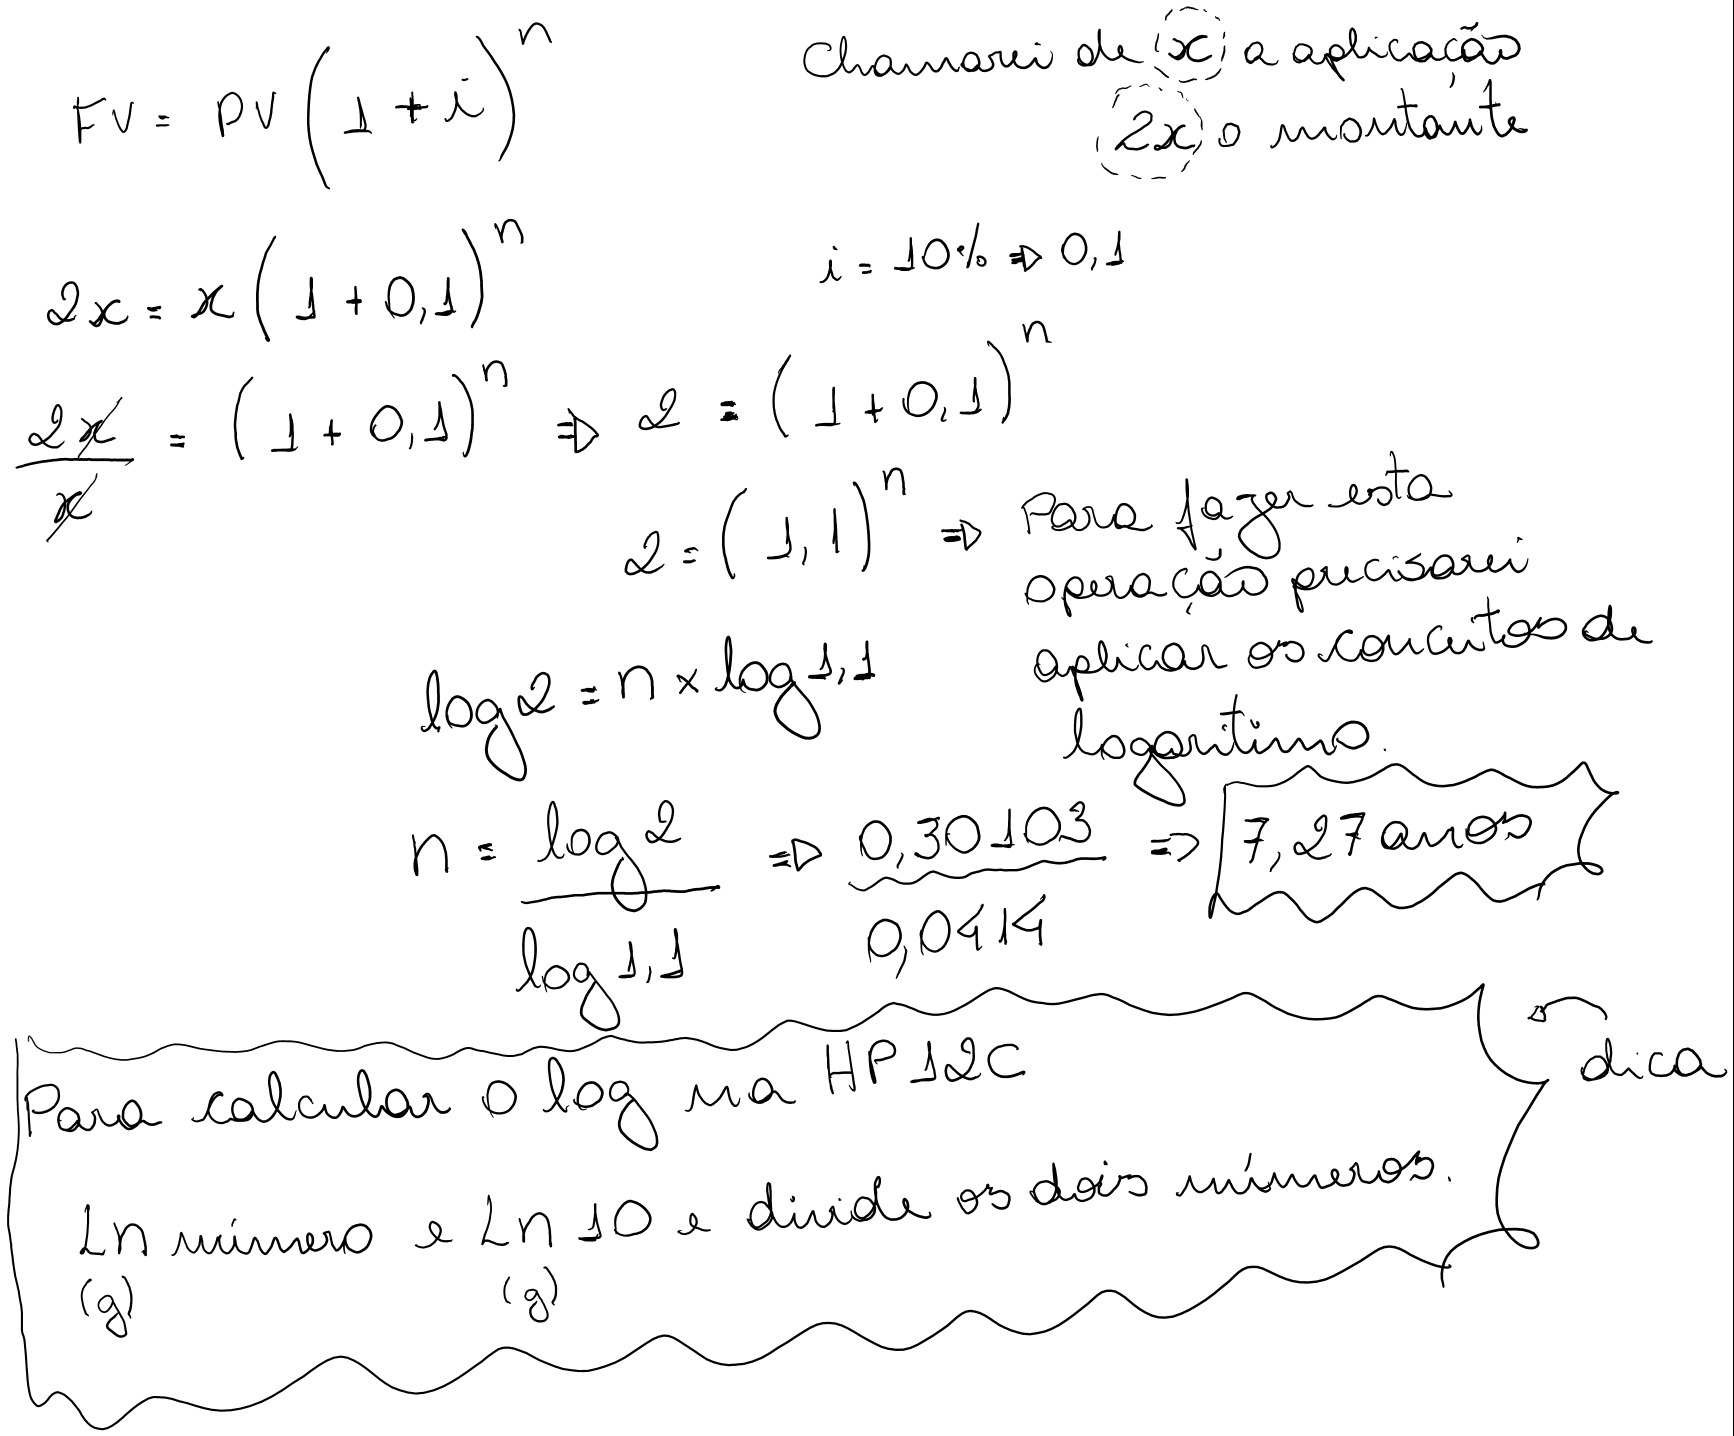 FV = PV (1 + i)^n
Chamarei de x a aplicação
2x o montante
2x = x (1 + 0,1)^n
i = 10% ⇒ 0,1
2x/x = (1 + 0,1)^n ⇒ 2 = (1 + 0,1)^n
2 = (1,1)^n ⇒ Para fazer esta
operação precisarei
aplicar os conceitos de
logaritimo.
log 2 = n × log 1,1
n = log 2 / log 1,1 ⇒ 0,30103 / 0,0414 => 7,27 anos
dica
Para calcular o log na HP12C
Ln número e Ln 10 e divide os dois números.
(g) (g)